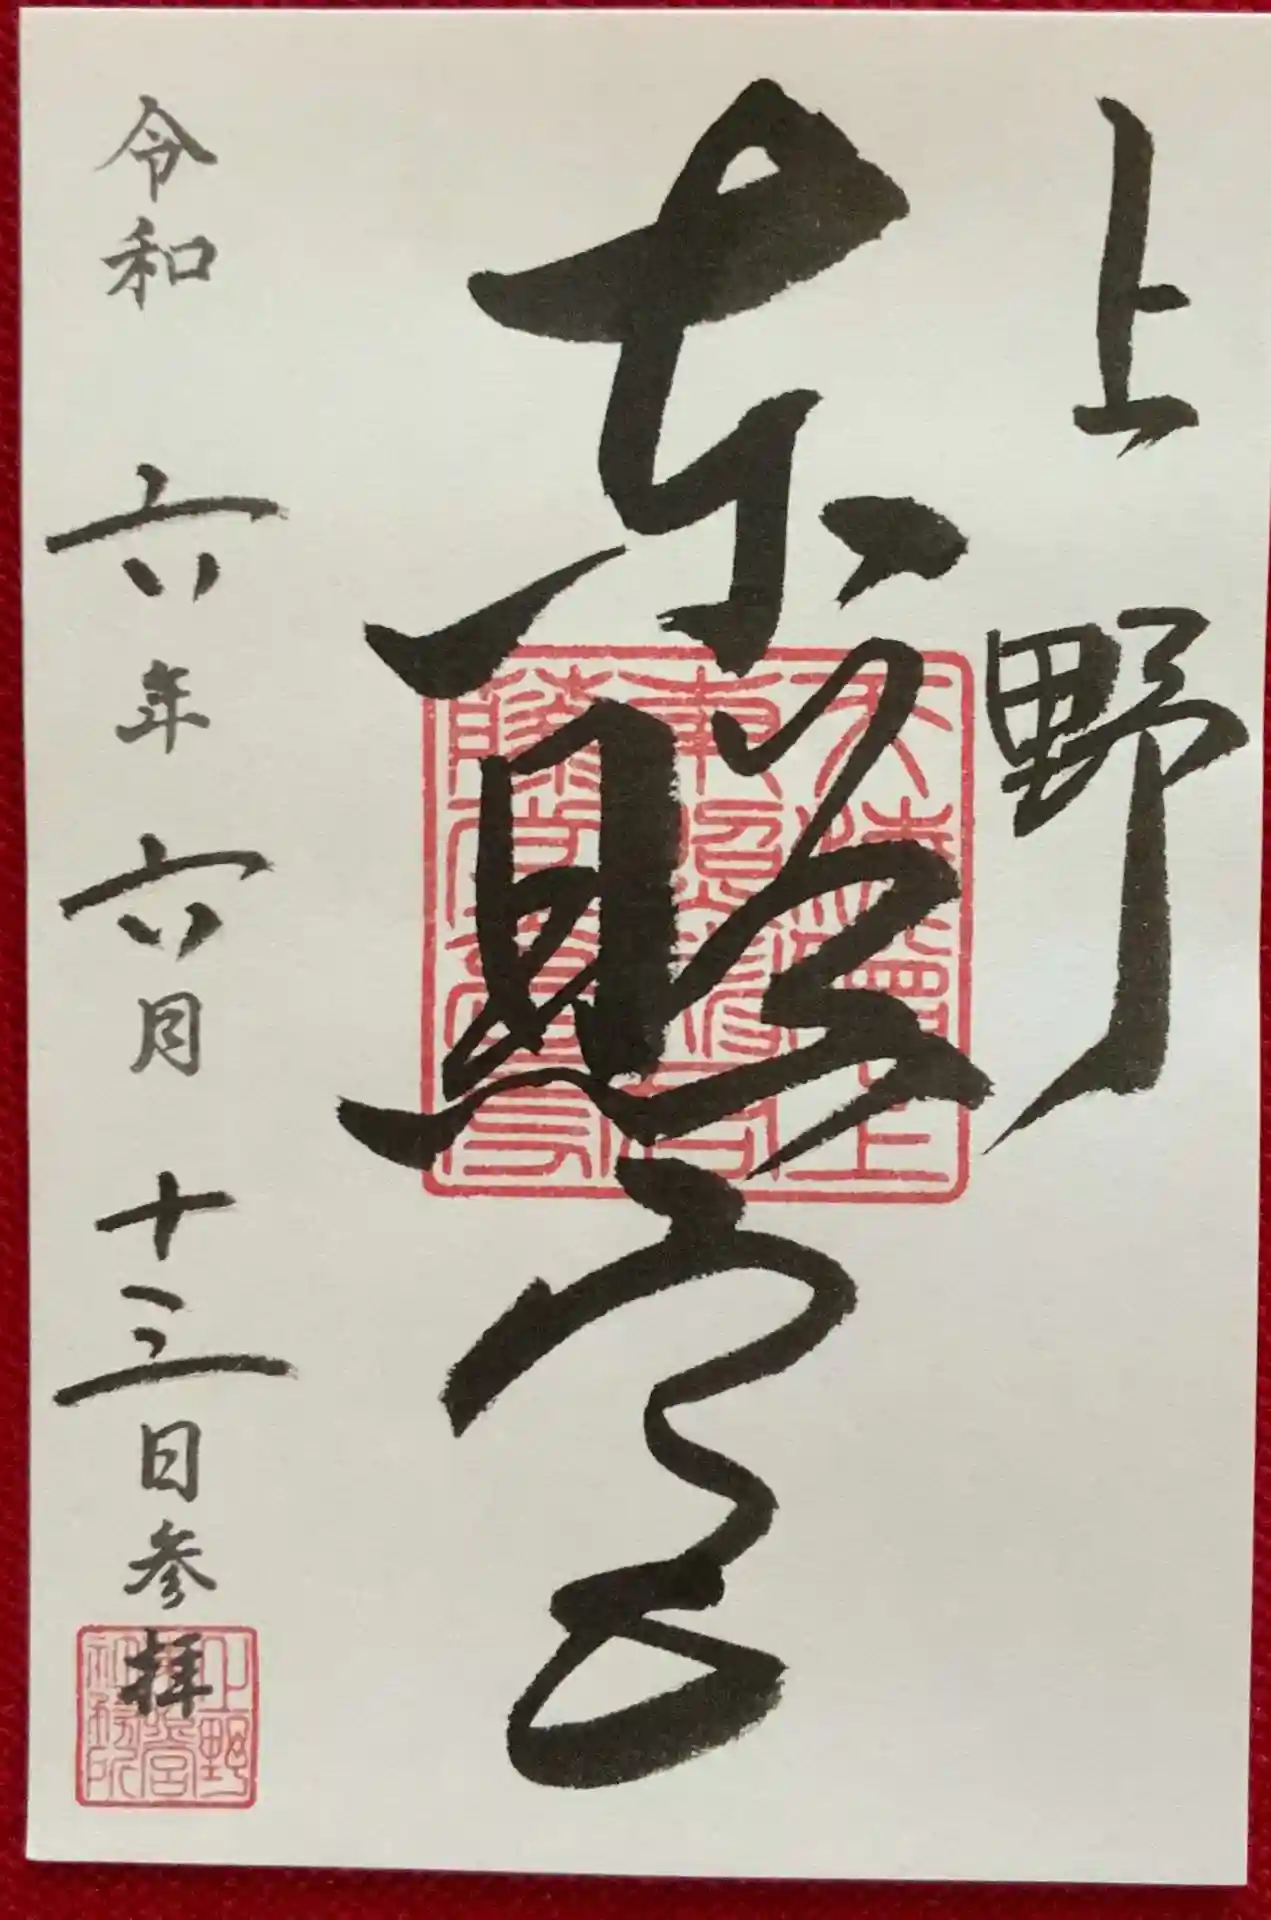 上野
東照宮
令和六年六月十三日参拝
上野
東照宮
社務所